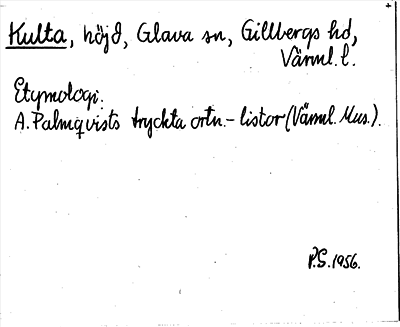 Kulta, höjd, Glava sn, Gillbergs hd,
Värml. l.
Etymologi.
A. Palmqvists tryckta ortn.-listor (Värml. Mus.).
P.S. 1956.